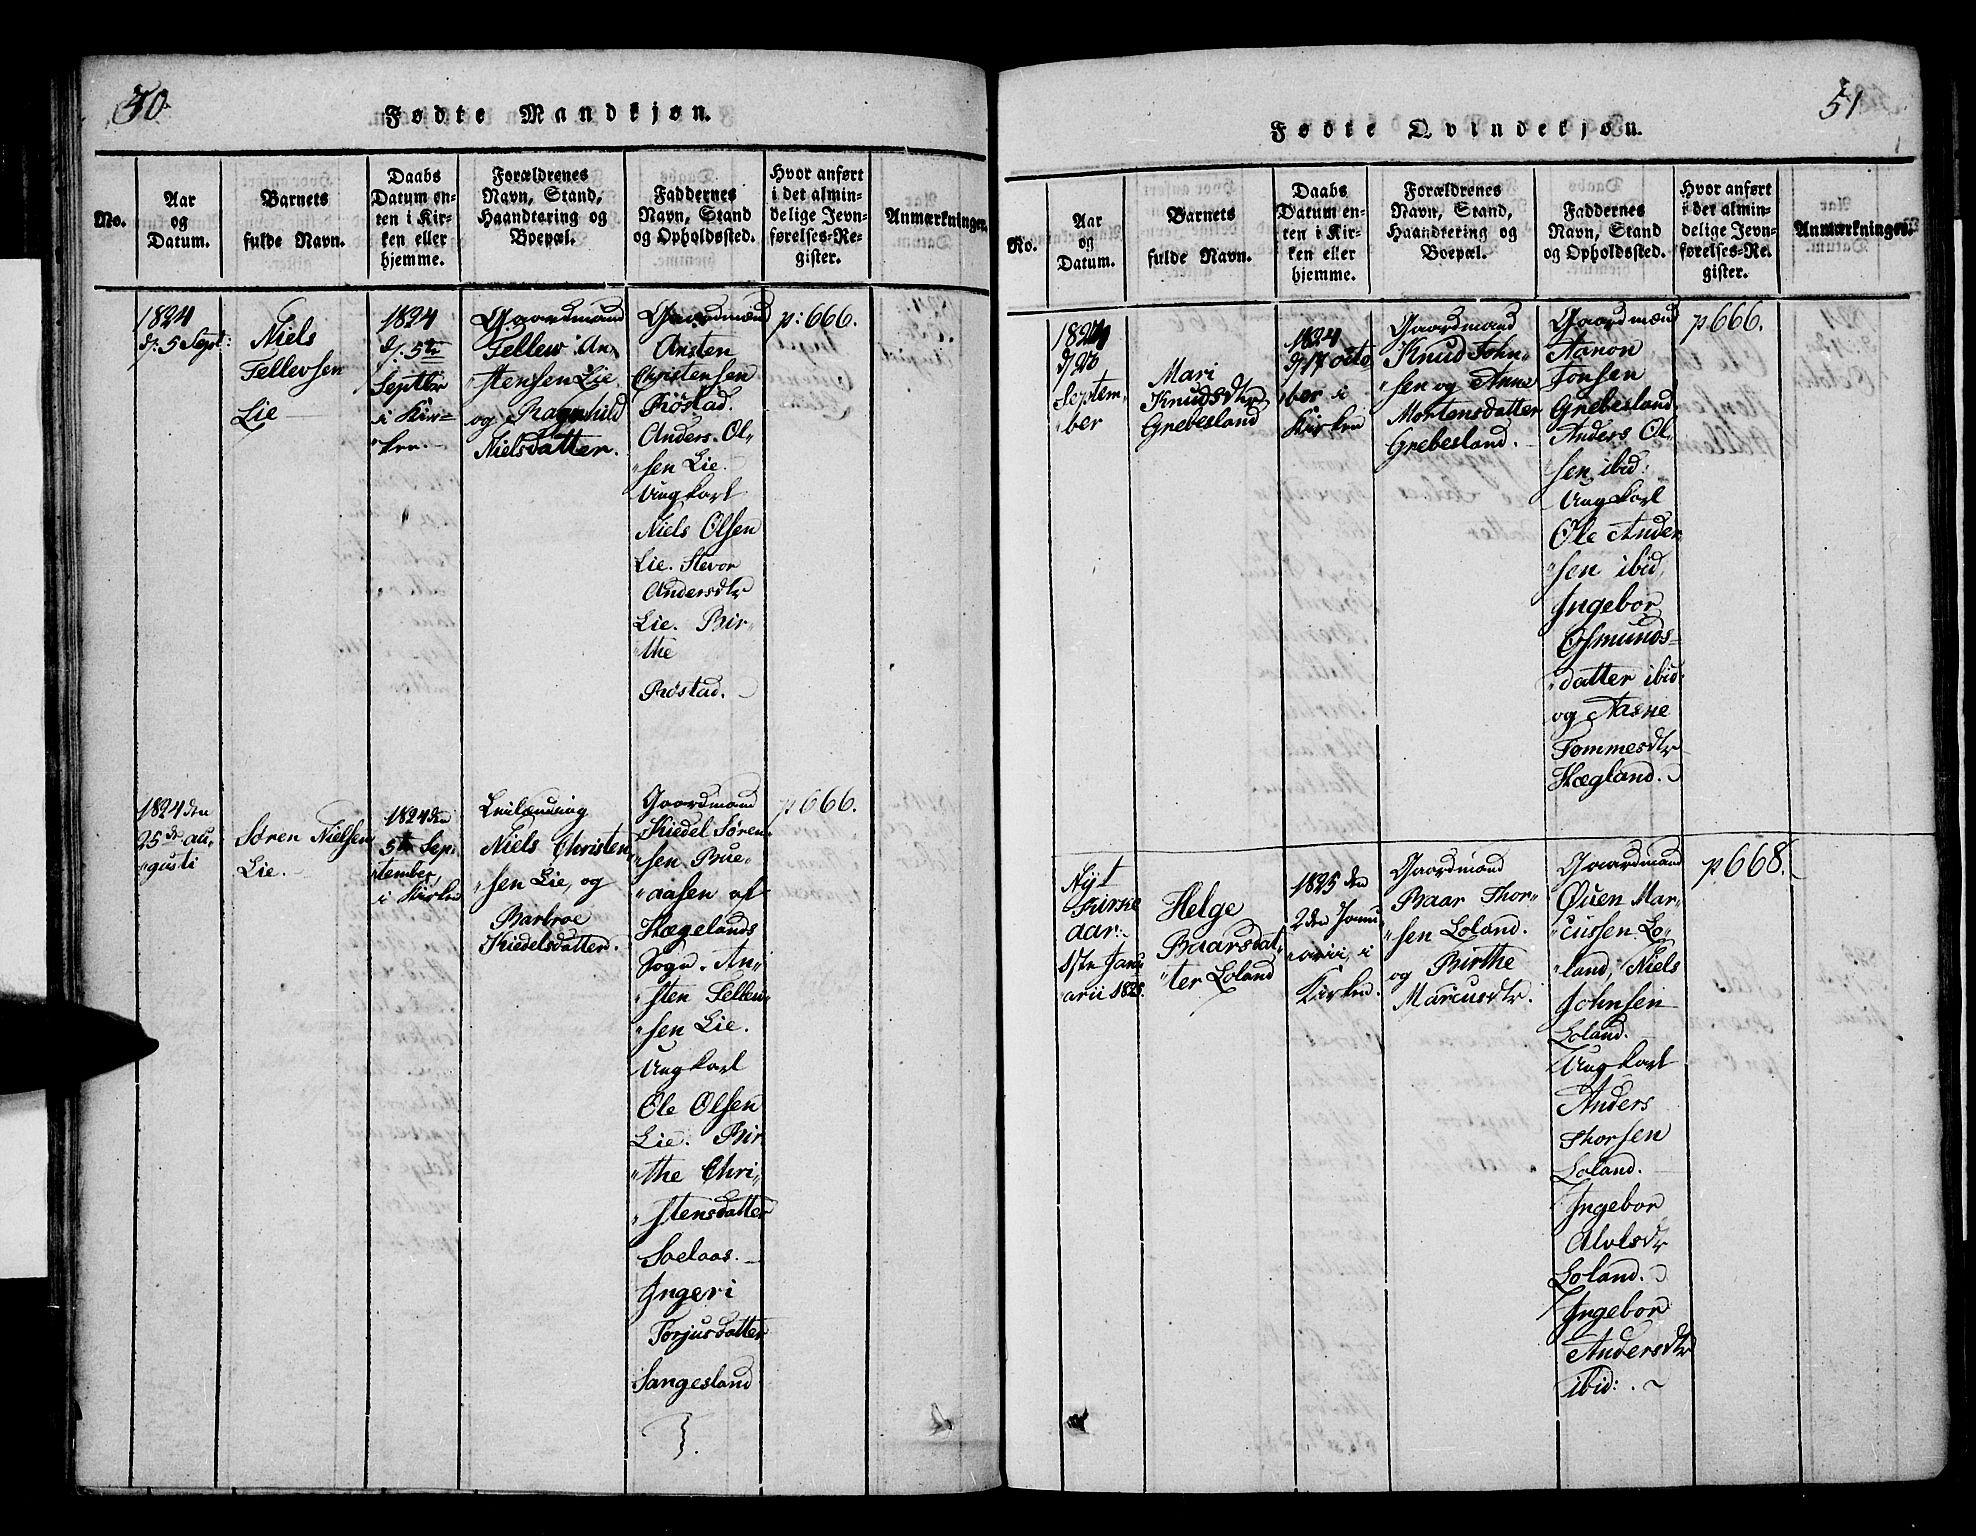 50
Fødte Mandkjøn.
No.
Aar
og
Datum.
Barnets
fulde Navn.
Daabs
Datum en-
ten i Kir-
ken eller
hjemme.
Forældrenes
Navn, Stand,
Haandtering og
Boepæl.
Faddernes
Navn, Stand
og Opholdssted.
Hvor anført
i det almin-
delige Jevn-
førelses-Re-
gister.
Anmærkninger.
1824
d. 5 Sept:
Niels
Tellevsen
Lie
1824
d. 5te
Septbr
i Kir-
ken.
Gaardmand
Tellew An-
stensen Lie
og Ragnhild
Nielsdatter.
Gaardmænd
Ansten
Christensen
Røstad.
Anders Ol-
sen Lie.
Ungkarl
Niels Olsen
Lie. Stevor
Andersdtr
Lie. Bir-
the
Røstad.
p: 666.
1824 den
25de au-
gusti
Søren Nielsen
Lie.
1824 den
5te Sep-
tember,
i Kirken
Leilænding
Niels Christen-
sen Lie, og
Barbroe
Kiedelsdatter.
Gaardmand
Kiedel Søren-
sen Brue-
aasen af
Hægelands
Sogn. An-
sten Tellew-
sen Lie.
Ungkarl
Ole Olsen
Lie. Bir-
the Chri-
stensdatter
Soelaas.
Ingeri
Torjusdatter
Sangesland
p 666.
51
Fødte Qvindekjøn.
No.
Aar
og
Datum.
Barnets
fulde Navn.
Daabs
Datum en-
ten i Kir-
ken eller
hjemme.
Forældrenes
Navn, Stand,
Haandtering og
Boepæl.
Faddernes
Navn, Stand
og Opholdssted.
Hvor anført
i det almin-
delige Jevn-
førelses-Re-
gister.
Anmærkninger.
1824
Septem-
ber
Mari
Knudsdtr
Grebesland
1824
d/17 octo
ber i
Kirken
Gaardmand
Knud John-
sen og Anne
Mortensdatter
Grebesland.
Gaardmænd
Aanon
Jonsen
Grebesland
Anders Ol-
sen ibid:
Ungkarl
Ole Ander
sen ibid,
Ingebor
Osmunds-
datter ibid:
og Aasne
Tommesdtr
Hægland.
p 666.
Nyt
Kirke
aar.
1ste Janu
arii 1825.
Helge
Baarsdat-
ter Loland
1825 den
2den Janu-
arii, i
Kirken.
Gaardmand
Baar Thor-
sen Loland.
og Birthe
Marcusdtr.
Gaardmand
Ouen Mar-
cussen Lo-
land, Niels
Johnsen
Loland.
Ungkarl
Anders
Thorsen
Loland.
Ingebor
Alvlsdtr
Loland.
Ingebor
Andersdtr
ibid:
p 668.